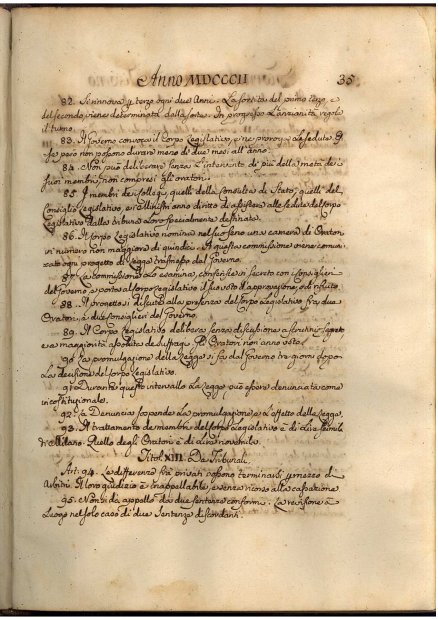 Anno MDCCCII 35
82. Si rinnova p terzo ogni due Anni. La sortita del primo terzo, e
del secondo, viene determinata dalla sorte. In progresso l'anzianità regola
il turno.
83. Il Governo convoca il Corpo Legislativo, e ne proroga le sedute
se però non possono durare meno di due mesi all'anno.
84. Non può deliberare senza l'intervento di più della metà de'
suoi membri, non compresi gli oratori.
85. I membri dei Collegi, quelli della Consulta di Stato, quelli del
Consiglio Legislativo, ed i Ministri anno diritto di assistere alle sedute del Corpo
Legislativo dalla tribuna a loro specialmente destinata.
86. Il Corpo Legislativo nomina nel suo seno una camera di Oratori
in numero non maggiore di quindici. A questa commissione viene comuni
cato ogni progetto di Legge trasmesso dal Governo.
87. La commissione lo esamina, conferisce in secreto con i consiglieri
del Governo, e porta al Corpo Legislativo il suo voto d'approvazione, o di rifiuto.
88. Il progetto si discute alla presenza del Corpo Legislativo fra due
Oratori, e due consiglieri del Governo.
89. Il Corpo Legislativo delibera senza discussione a scrutinio segreto
e a maggiorità assoluta de' suffragj. Gli Oratori non anno voto.
90. La promulgazione della Legge si fa dal Governo tre giorni dopo
la decisione del Corpo Legislativo.
91. Durante questo intervallo la Legge può essere denunciata come
incostituzionale.
92. La Denuncia sospende la promulgazione, e l'effetto della Legge.
93. Il trattamento de' membri del Corpo Legislativo è di Lire
di Milano. Quello degli Oratori è di Lire novemila.
Titol. XIII. De' Tribunali.
Art: 94. Le differenze fra privati possono terminarsi p mezzo di
Arbitri. Il loro giudizio è inappellabile, e senza ricorso alla cassazione.
95. Non vi è appello da due sentenze conformi. La revisione à
Luogo nel solo caso di due Sentenze discordanti.